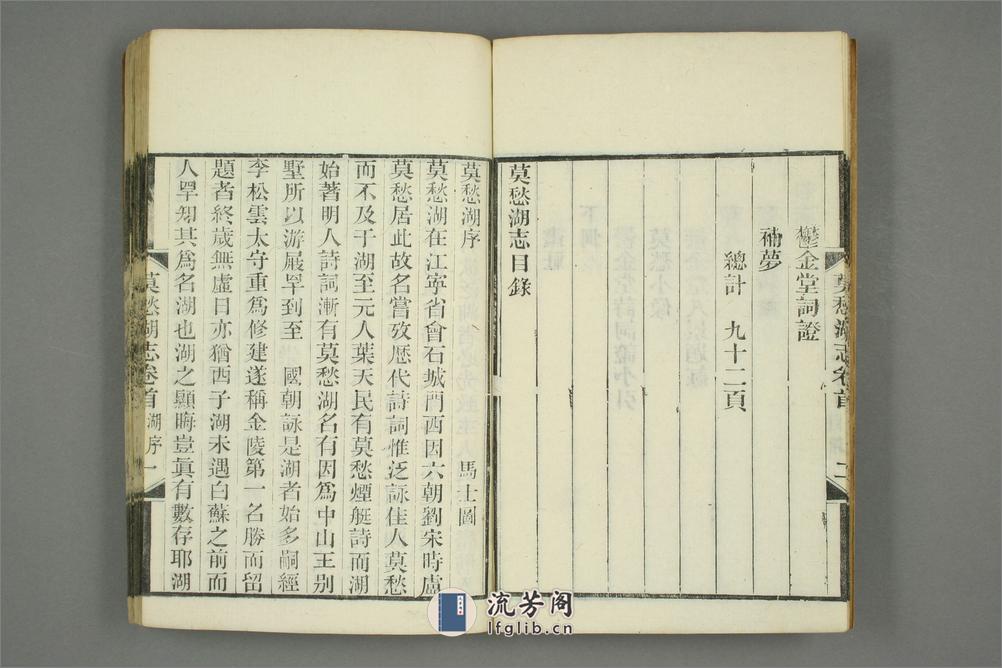 鬱金堂詞證
補夢
總計　九十二頁
莫愁湖志目錄
莫愁湖志卷首
二
莫愁湖序　馬士圖
莫愁湖在江寧省會石城門西因六朝劉宋時盧
莫愁居此故名嘗攷歷代詩詞惟泛詠佳人莫愁
而不及于湖至元人葉天民有莫愁煙艇詩而湖
始著明人詩詞漸有莫愁湖名有因爲中山王别
墅所以游屐罕到至　國朝詠是湖者始多嗣經
李松雲太守重爲修建遂稱金陵第一名勝而留
題者終歲無虛日亦猶西子湖未遇白蘇之前而
人罕知其爲名湖也湖之顯晦豈眞有數存耶湖
莫愁湖志卷首　湖序　一
流芳阁
lfglib.cn